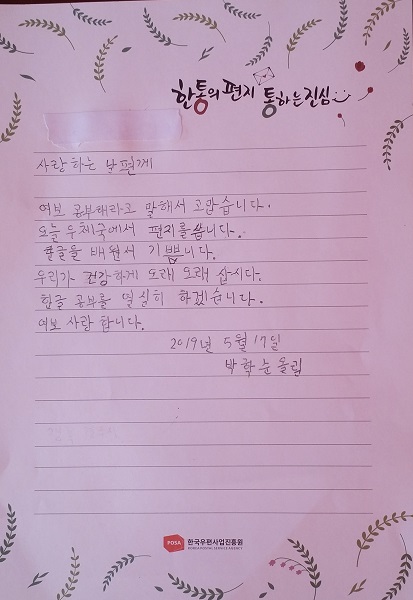 한통의 편지 통하는 진심
사랑하는 남편께
여보 공부해라고 말해서 고맙습니다.
오늘 우체국에서 편지를 씁니다.
한글을 배워서 기쁩니다.
우리가 건강하게 오래 오래 삽시다.
한글 공부를 열심히 하겠습니다.
여보 사랑 합니다.
2019년 5월 17일
박학순올림
POSA 한국우편사업진흥원
KOREA POSTAL SERVICE AGENCY